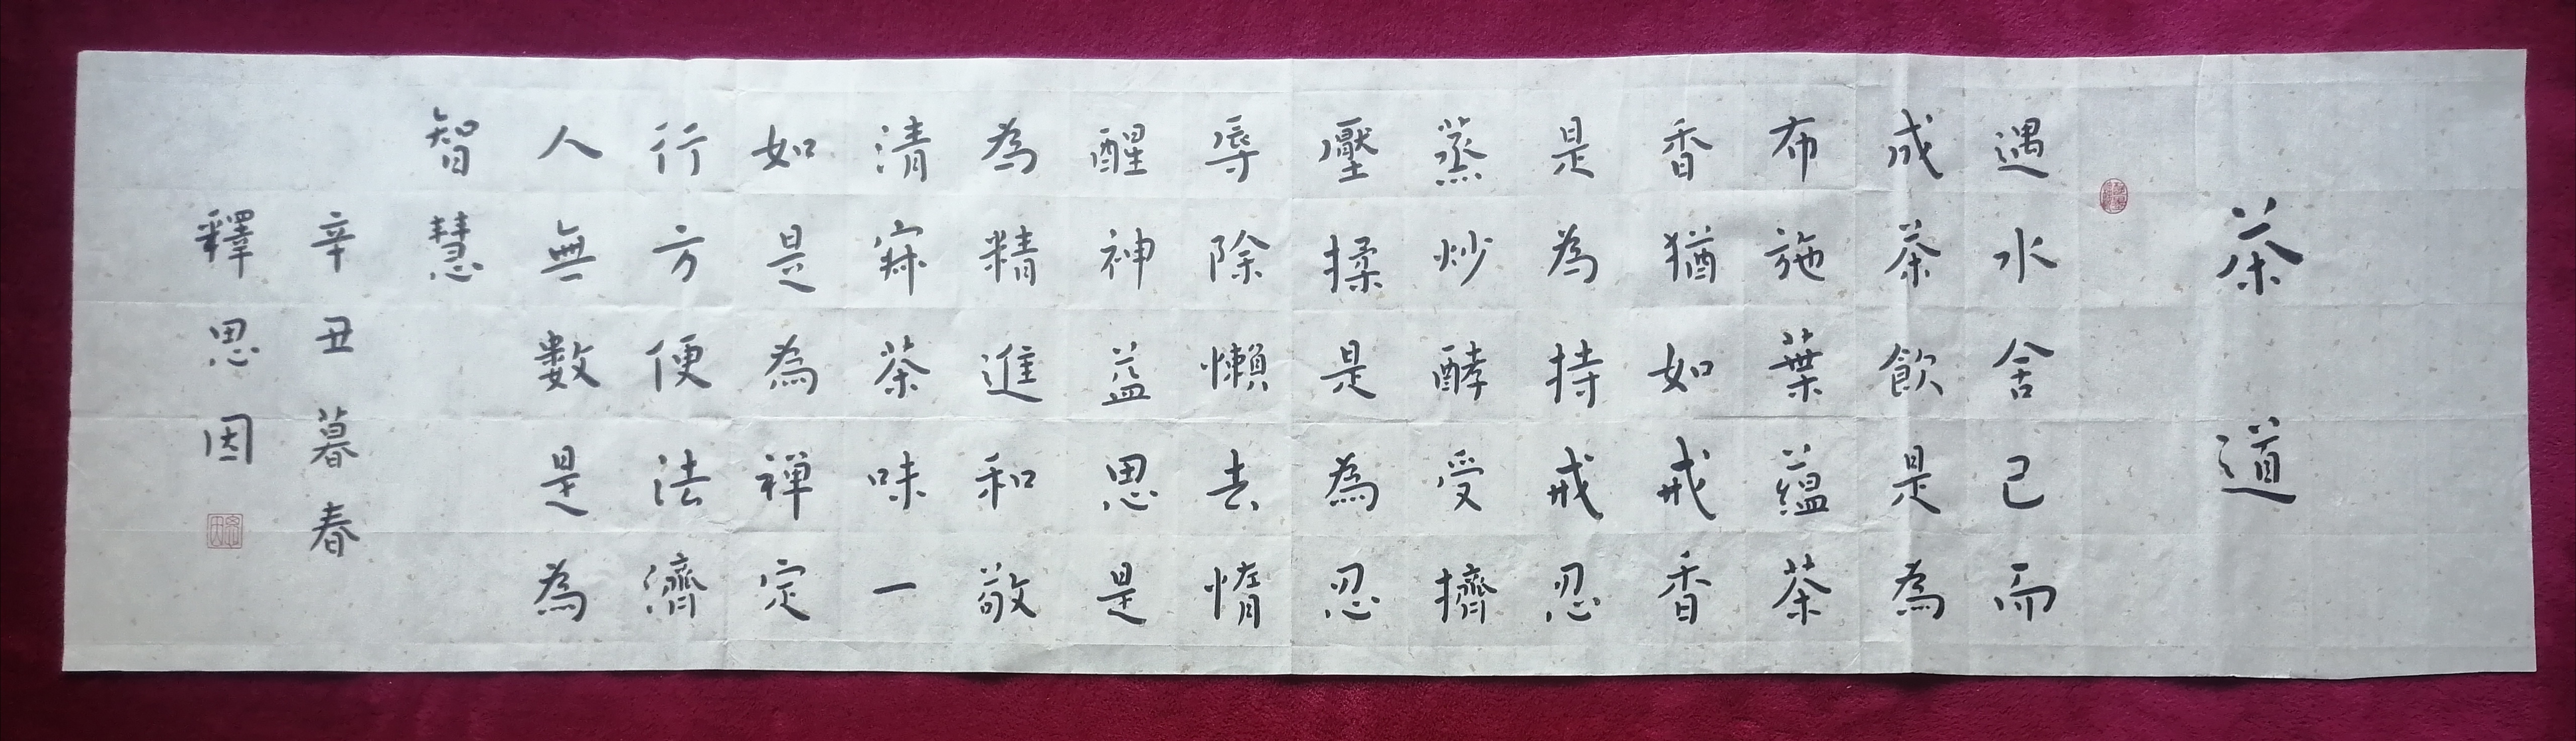 茶道
遇水舍己而
成茶飲是為
布施葉蘊茶
香猶如戒香
是為持戒忍
蒸炒酵受擠
壓揉是為忍
辱除懶去惰
醒神益思是
為精進和敬
清寂茶味一
如是為禅定
行方便法濟
人無數是為
智慧
辛丑暮春
釋思因